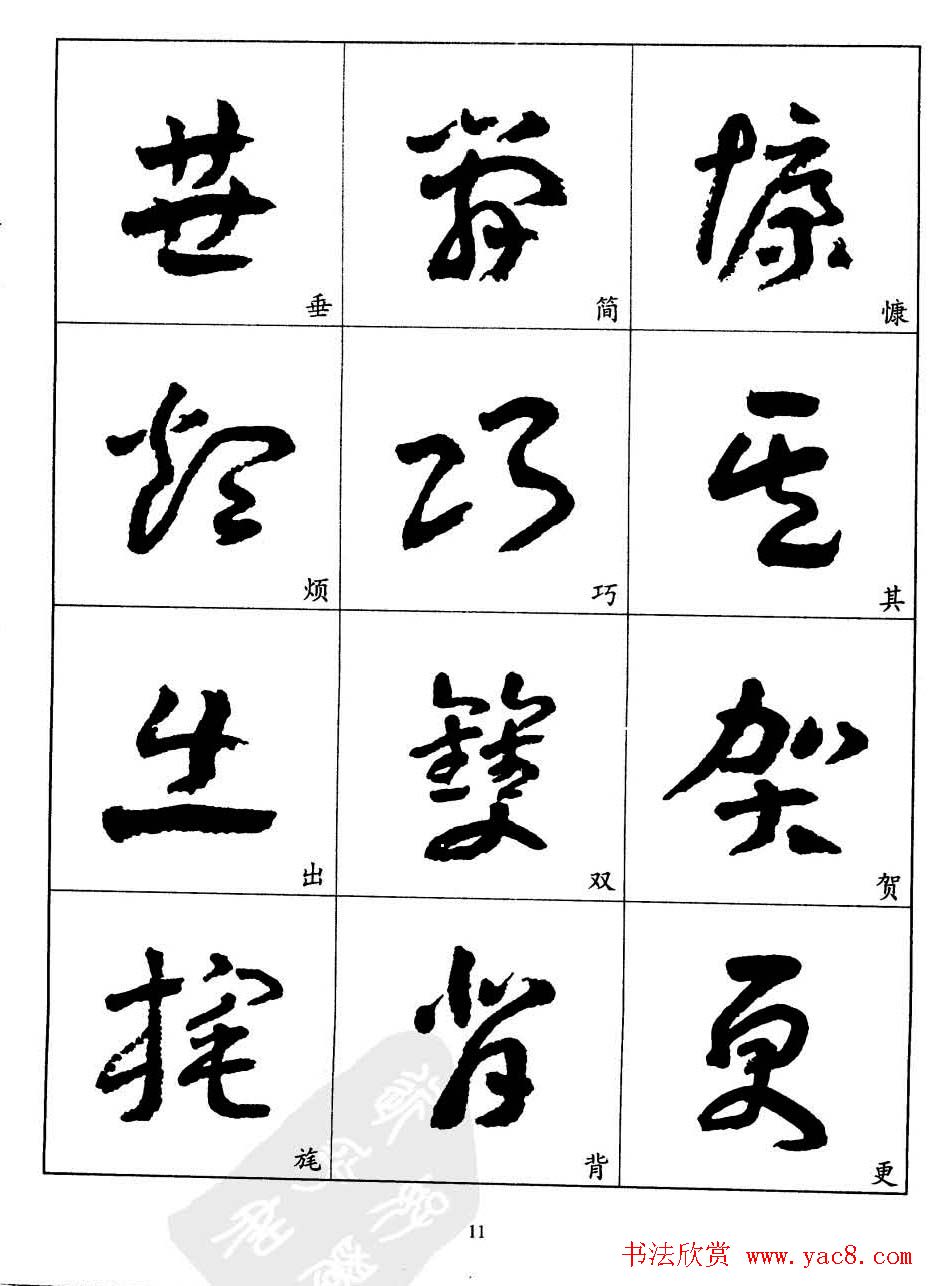 垂 简 慷
烦 巧 其
出 双 贺
旄 背 更
11
书法欣赏 www.yac8.com